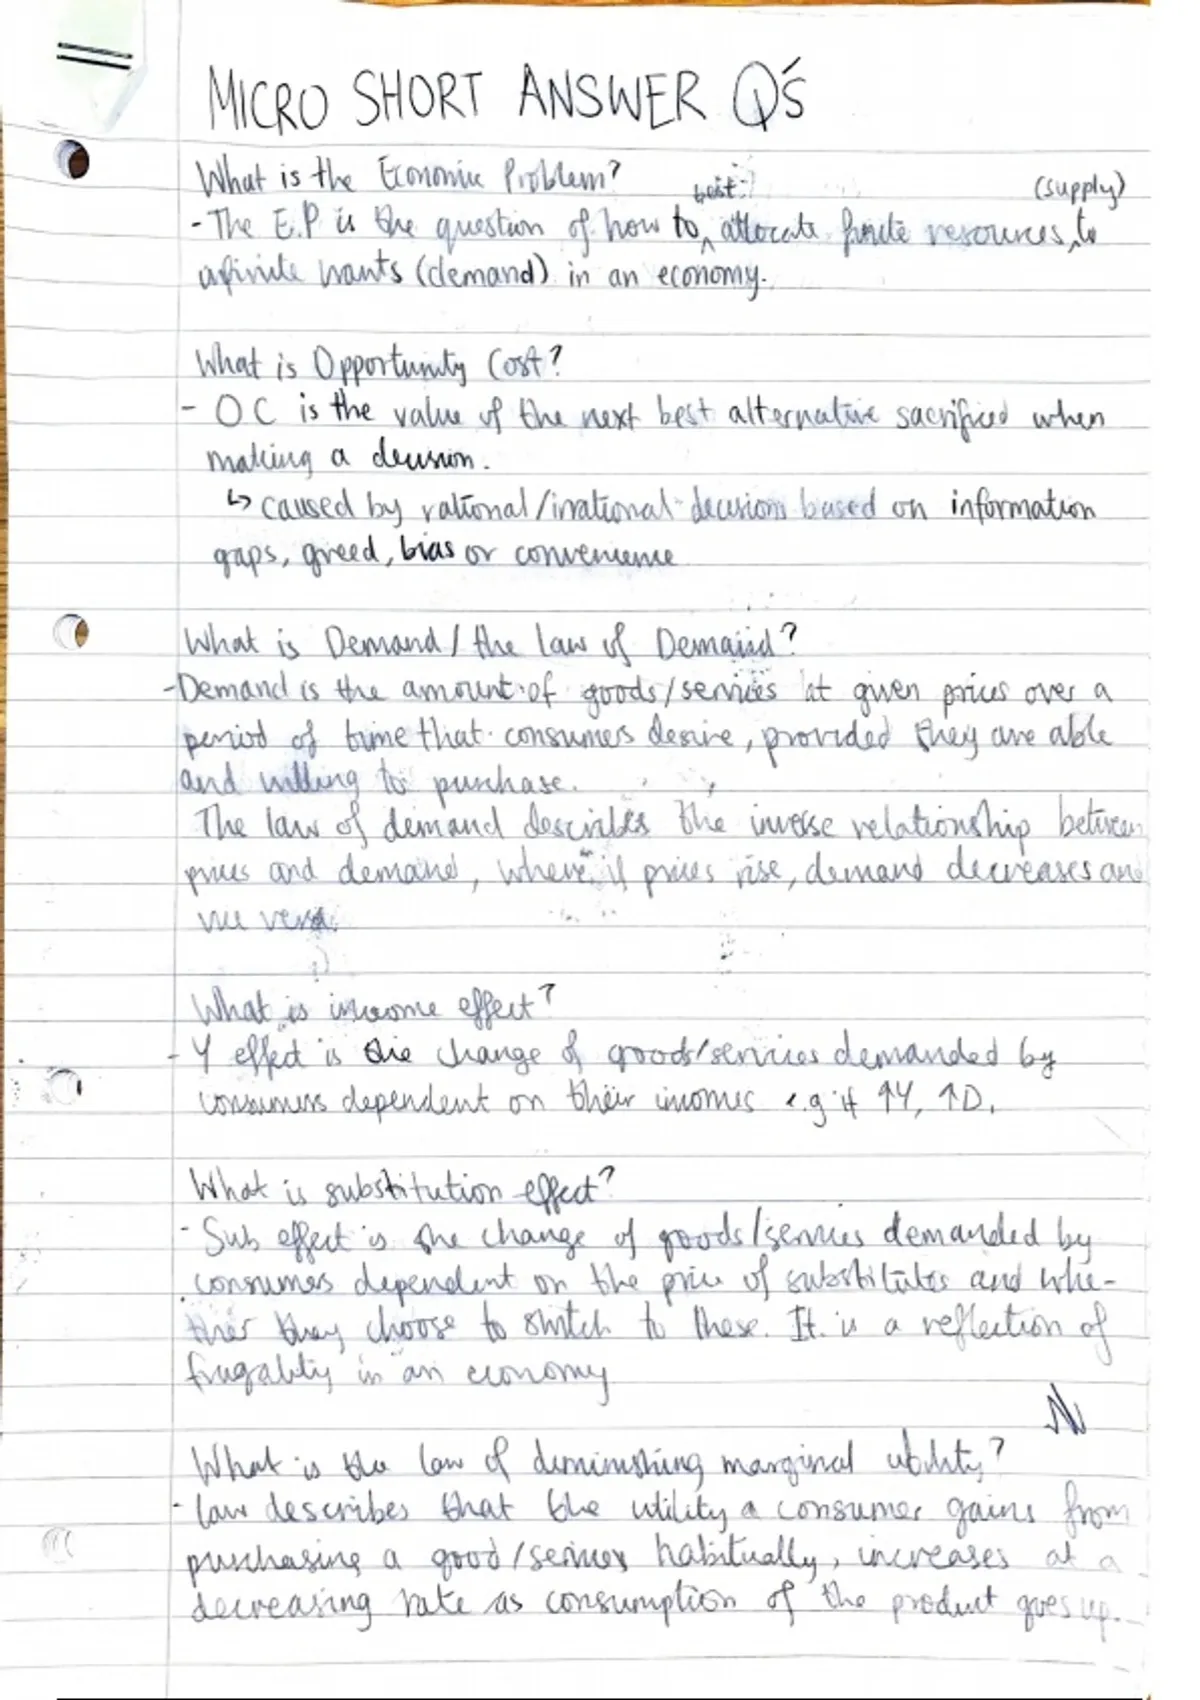 MICRO SHORT ANSWER Q's
What is the Economic Problem?
best (supply)
- The E.P is the question of how to ^ allocate finite resources ^ to
infinite wants (demand) in an economy.
What is Opportunity Cost?
- OC is the value of the next best alternative sacrificed when
making a decision.
↳ caused by rational/irrational decisions based on information
gaps, greed, bias or convenience
What is Demand / the law of Demand?
- Demand is the amount of goods/services at given prices over a
period of time that consumers desire, provided they are able
and willing to purchase.
The law of demand describes the inverse relationship between
prices and demand, where if prices rise, demand decreases and
vice versa.
What is income effect?
- Y effect is the change of goods/services demanded by
consumers dependent on their incomes e.g if ↑Y, ↑D.
What is substitution effect?
- Sub effect is the change of goods/services demanded by
consumers dependent on the price of substitutes and whe-
ther they choose to switch to these. It is a reflection of
frugality in an economy
What is the law of diminishing marginal utility?
- law describes that the utility a consumer gains from
purchasing a good/services habitually, increases at a
decreasing rate as consumption of the product goes up.